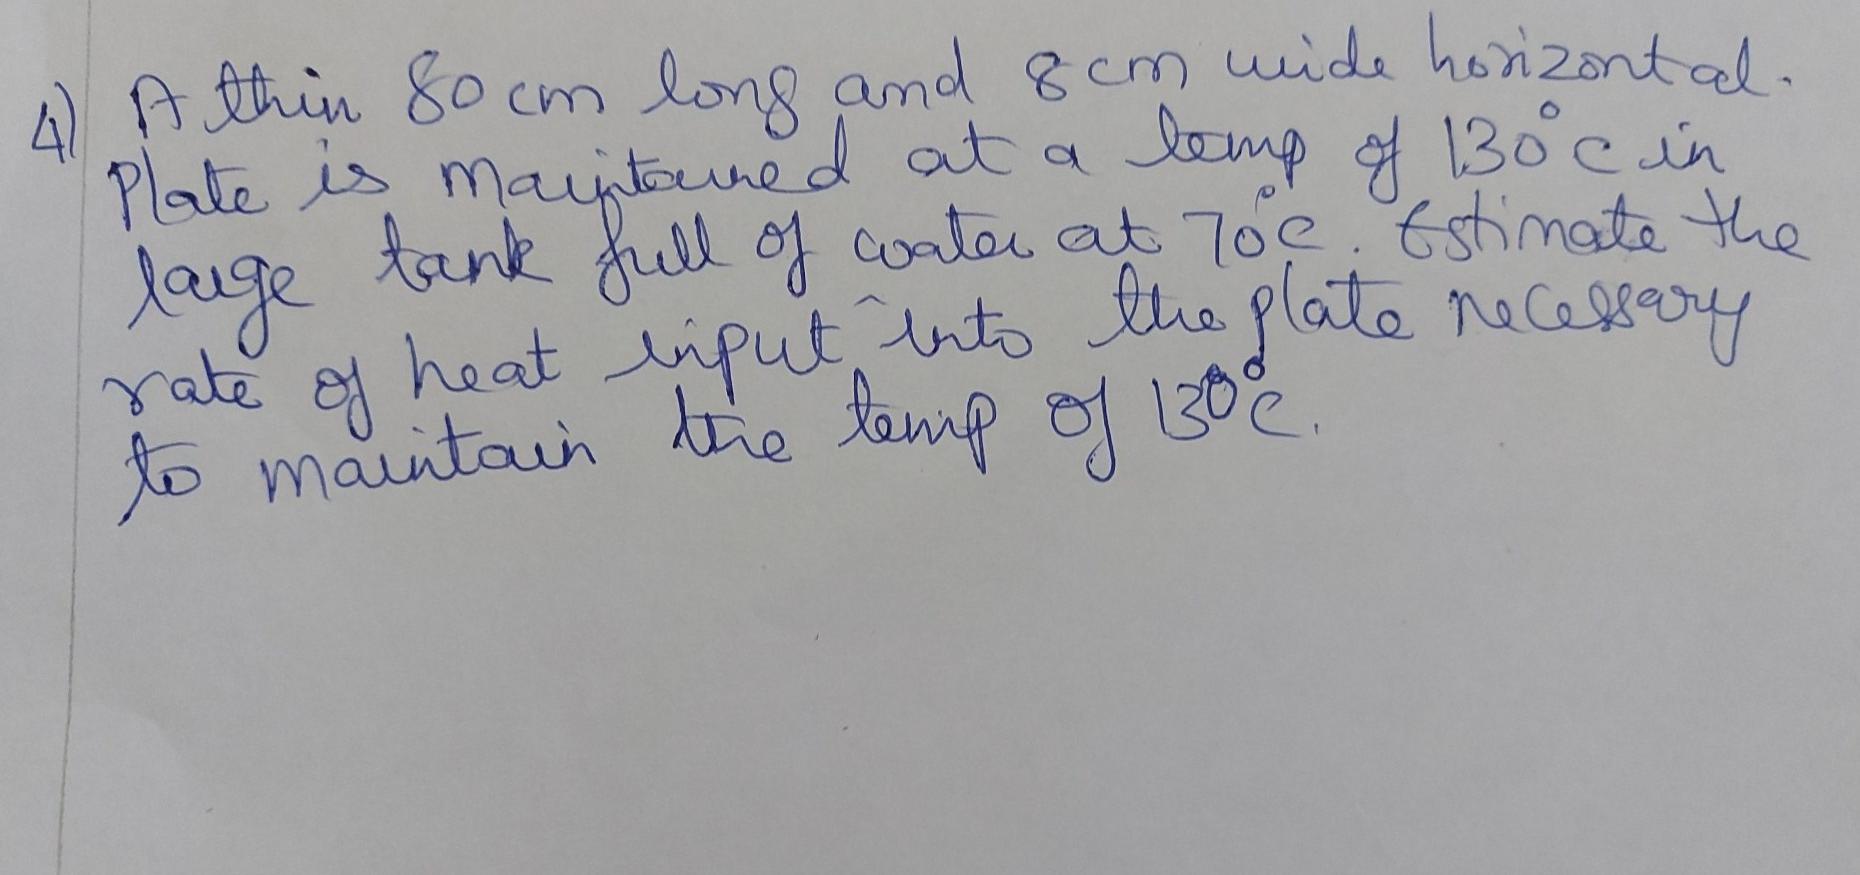 4) A thin 80 cm long and 8 cm wide horizontal.
Plate is maintained at a temp of 130°C in
large tank full of water at 70°C. Estimate the
rate of heat input into the plate necessary
to maintain the temp of 130°C.